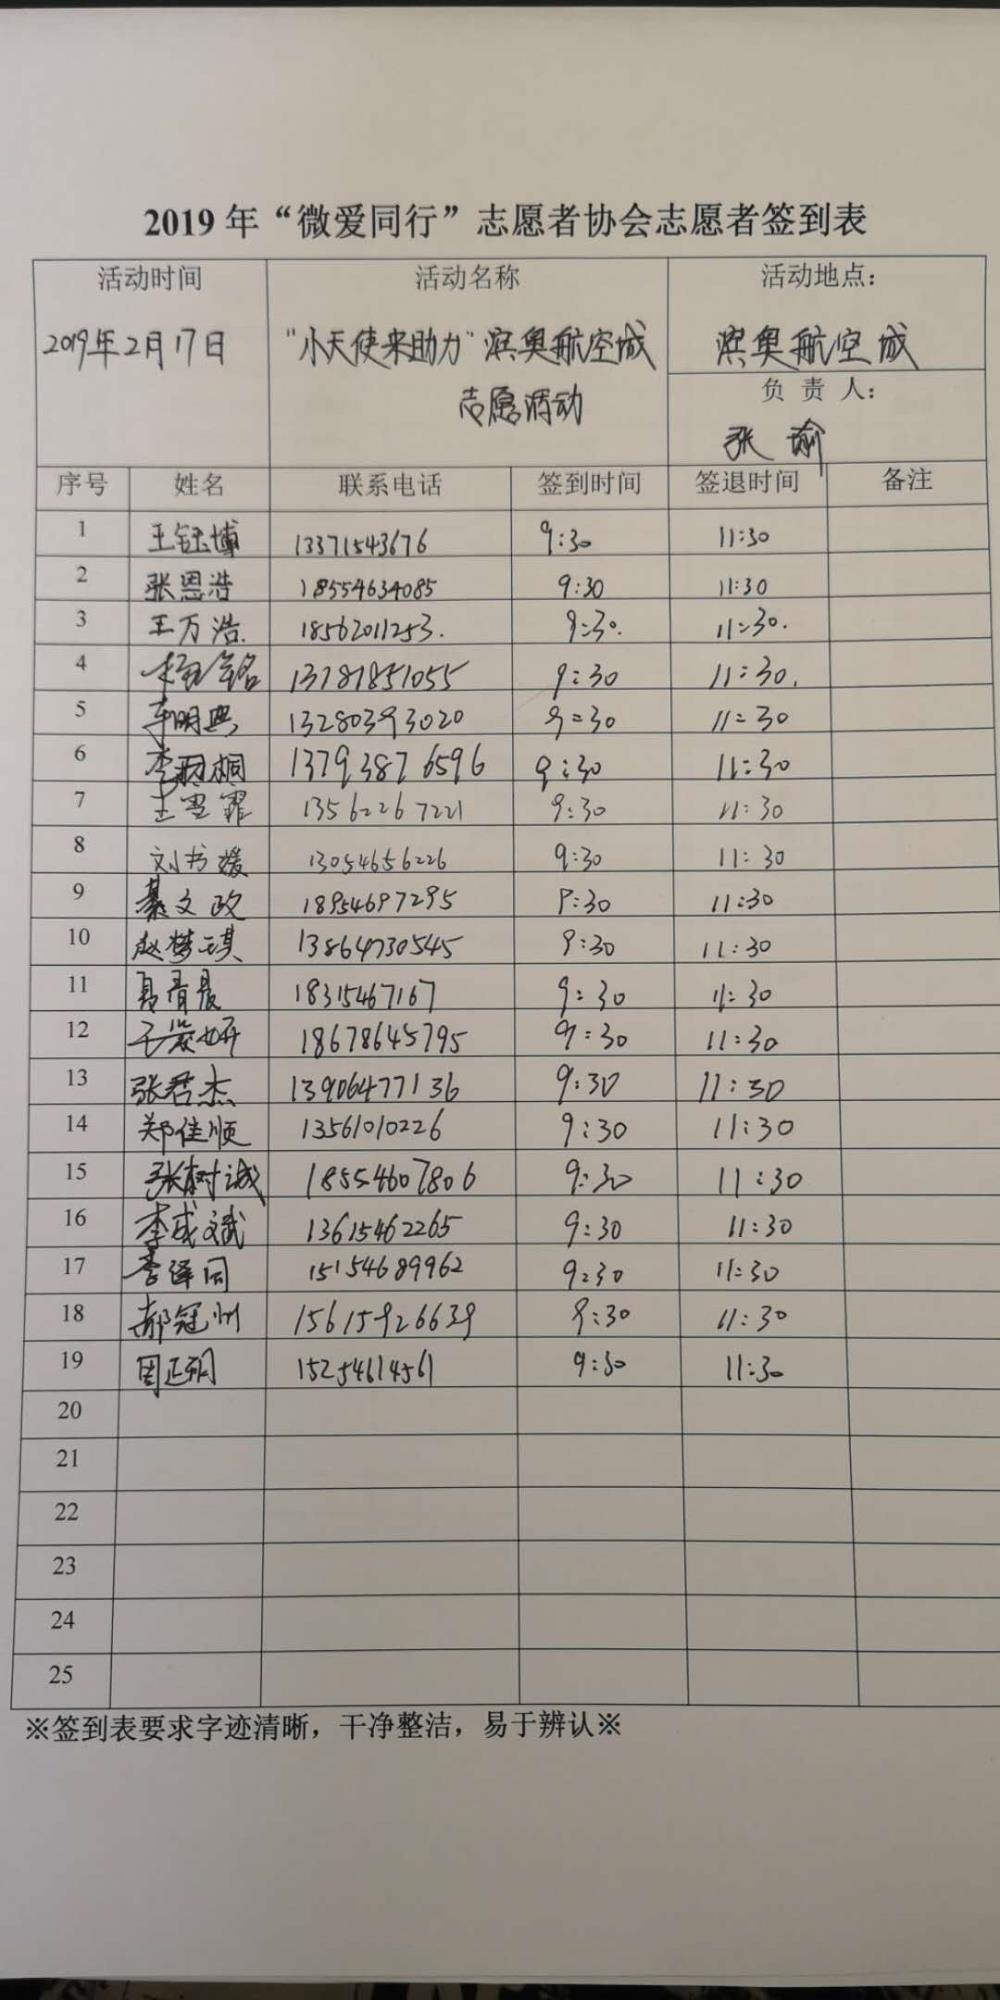 2019 年“微爱同行”志愿者协会志愿者签到表
活动时间 活动名称 活动地点：
2019年2月17日 “小天使来助力”滨奥航空城 滨奥航空城
志愿活动
负 责 人：
张 瑜
序号 姓名 联系电话 签到时间 签退时间 备注
1 王钰博 13371543676 9:30 11:30
2 张恩浩 18554634085 9:30 11:30
3 王万浩. 18562011253. 9:30. 11:30.
4 13781851055 9:30 11:30.
5 李明典 13280393020 9:30 11:30
6 李桐 13793876596 9:30 11:30
7 王雪霏 13562267221 9:30 11:30
8 刘书媛 13054656226 9:30 11:30
9 綦文政 18954697295 9:30 11:30
10 赵梦琪 13864730545 9:30 11:30
11 18315467167 9:30 11:30
12 18678645795 9:30 11:30
13 张君杰 13906477136 9:30 11:30
14 郑佳顺 13561010226 9:30 11:30
15 张树诚 18554607806 9:30 11:30
16 李成斌 13615462265 9:30 11:30
17 李泽同 15154689962 9:30 11:30
18 郝冠州 15615926639 9:30 11:30
19 周正朔 15254614561 9:30 11:30
20
21
22
23
24
25
※签到表要求字迹清晰，干净整洁，易于辨认※